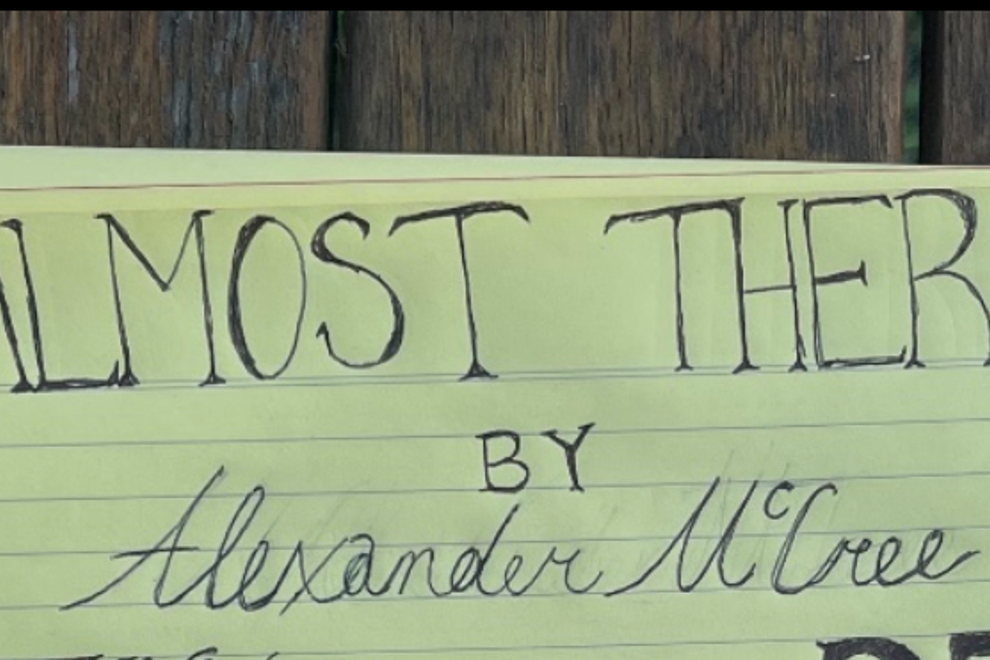 ALMOST THER
BY
Alexander McCree